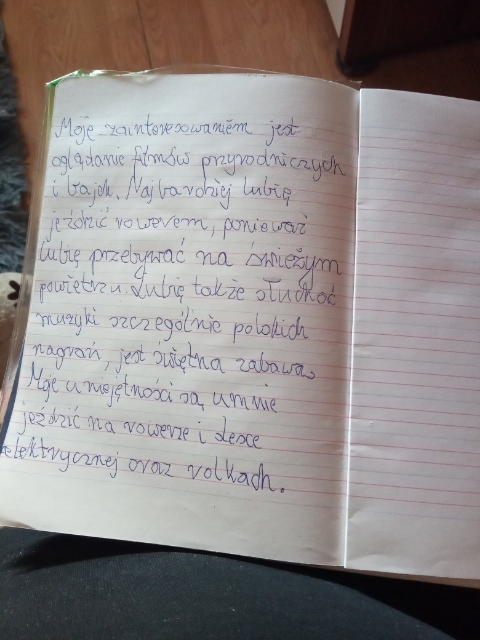 Moję zainteresowaniem jest
oglądanie filmów przyrodniczych
i bajek. Najbardziej lubię
jeździć rowerem, ponieważ
lubię przebywać na świeżym
powietrzu. Lubię także słuchać
muzyki szczególnie polskich
nagrań, jest świętna zabawa
Moje umiejętności są, umnie
jeździć na rowerze i desce
elektrycznej oraz rolkach.